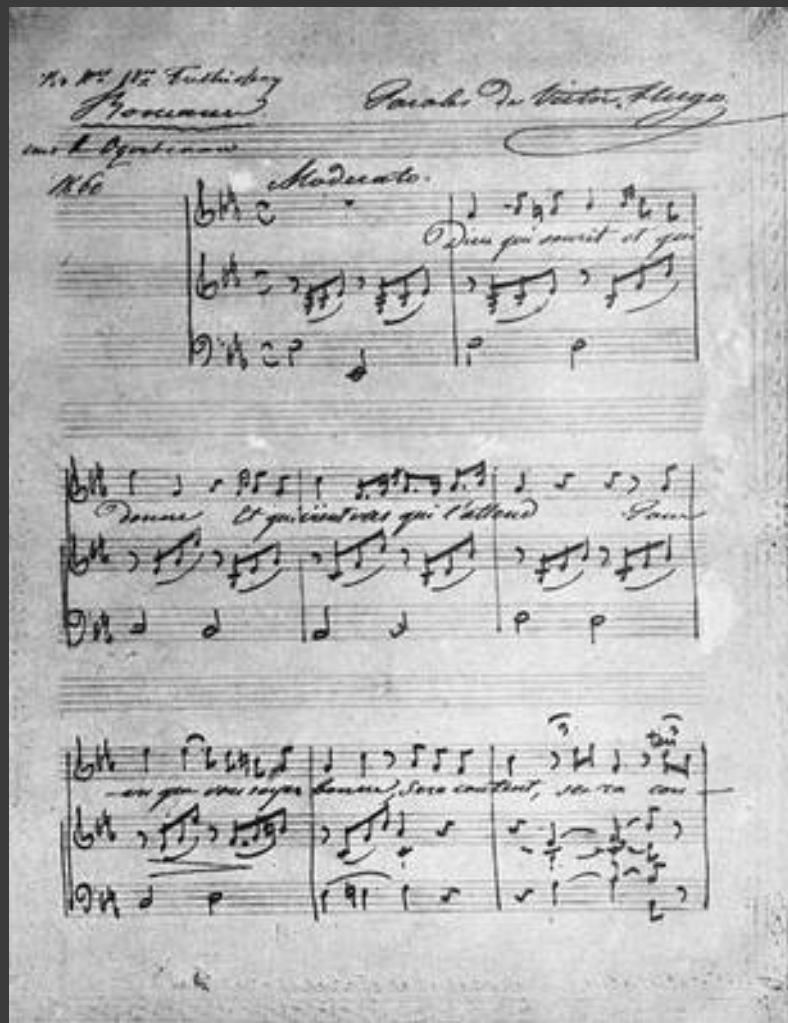 Romance
Paroles de Victor Hugo
1860
Moderato.
Dieu qui sourit et qui
donne Et qui vient vers qui l'attend Pour
- vu que vous soyez bonne, Sera content, sera con -